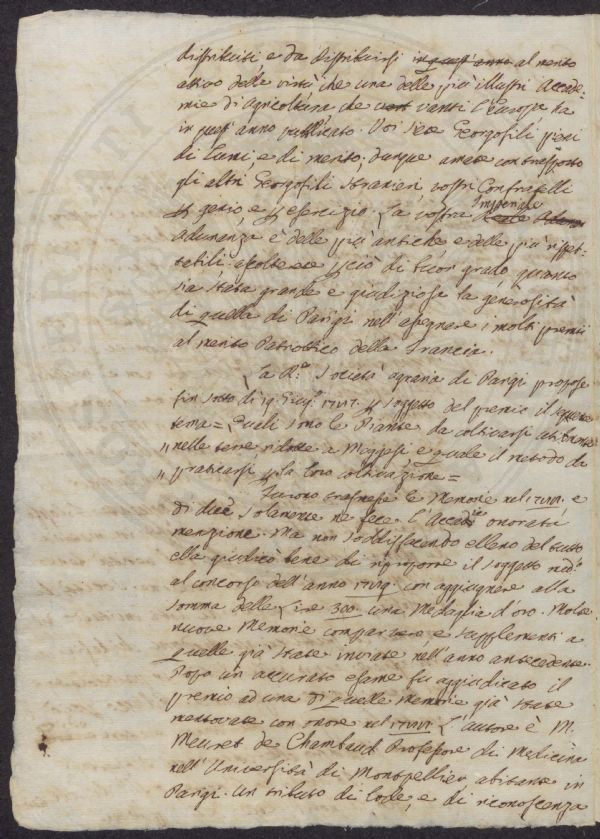 distribuiti e da distribuirsi in quest'anno al merito
attivo delle virtù che una delle più illustri Accade-
mie di Agricoltura che vanti l'Europa ha
in quest'anno pubblicato. Voi siete Georgofili pieni
di lumi e di merito, dunque amate con trasporto
gli altri Georgofili stranieri vostri Confratelli
genio e esercizio. La vostra Reale
Imperiale
adunanza è delle più antiche e delle più rispet-
tabili: ciò di buon grado quanto
sia stata grande e giudiziosa la generosità
di quella di Parigi nell'assegnare i molti premi
al merito Patriottico della Francia.
La R.e Società agraria di Parigi propose
fin sotto di 19 soggetto del premio il seguente
tema = Quali sono le Piante da coltivarsi
" nelle terre ridotte a Maggesi e quale il metodo da
" praticarsi la loro coltivazione =
Furono trasmesse le Memorie nel e
di due solamente ne fece l'Accad.a onorata
menzione. Ma non soddisfacendo elleno del tutto
ella giudicò bene di riproporre il soggetto med.o
al concorso dell'anno con aggiugnere alla
somma delle Lire 300 una Medaglia d'oro. Molte
nuove Memorie comparvero e supplementi a
quelle già state inviate nell'anno antecedente.
Dopo un accurato esame fu aggiudicato il
premio ad una di quelle Memorie già state
mentovate con onore nel L'autore è M.
Meuret de Chambaud Professore di Medicina
nell'Università di Montpellier abitante in
Parigi. Un tributo di lode, e di riconoscenza